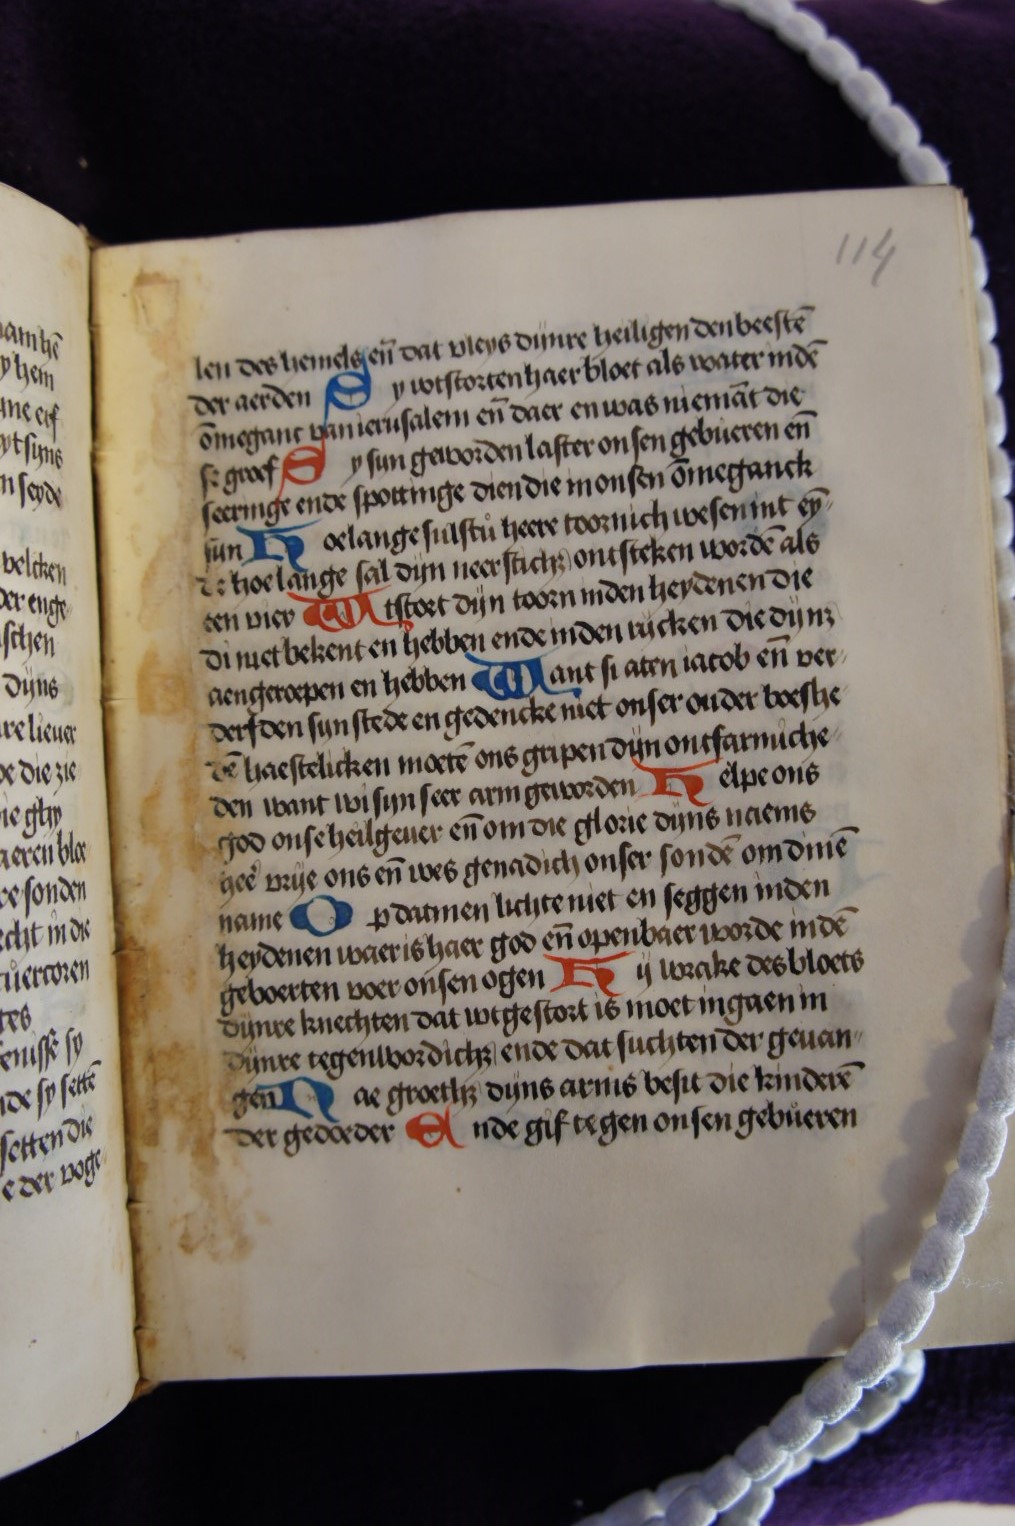 114
len des hemels en̄ dat vleys dijnre heiligen den beestē
der aerden Sy wtstorten haer bloet als water indē
ōmeganc van ierusalem en̄ daer en was niemāt die
se groef Sy sijn geworden laster onsen gebueren en̄
seeringe ende spottinge dien die in onsen ōmeganck
sijn Hoe lange sulstu heere toornich wesen int eȳ-
de hoe lange sal dijn neersticħ ontsteken wordē als
een vier Wtstort dijn toorn inden heydenen die
di niet bekent en hebben ende inden rijcken die dijnē
aengeroepen en hebben Want si aten iacob en̄ ver-
derfden sijn stede en gedencke niet onser ouder boeshe
dē haestelicken moetē ons gripen dijn ontfarmiche-
den want wi sijn seer arm geworden Helpe ons
god onse heilgeuer en̄ om die glorie dijns naems
heē vrije ons en̄ wes genadich onser sondē om dinē
name Op datmen lichte niet en seggen inden
heydenen waer is haer god en̄ openbaer worde indē
geboerten voer onsen ogen Hij wrake des bloets
dijnre knechten dat wtgestort is moet ingaen in
dijnre tegenwordicħ ende dat suchten der geuan-
gen Nae groetħ dijns arms besit die kinderē
der gedoeder Ende gif tegen onsen gebueren
am hē
y hem
yt sijns
n seyde
velcken
der enge-
schen
dijns
re lieuer
de die zie
aeren bloe
re sonden
cht in die
uercoren
tes
enisse sy
nde sy settē
setten die
e der voge-